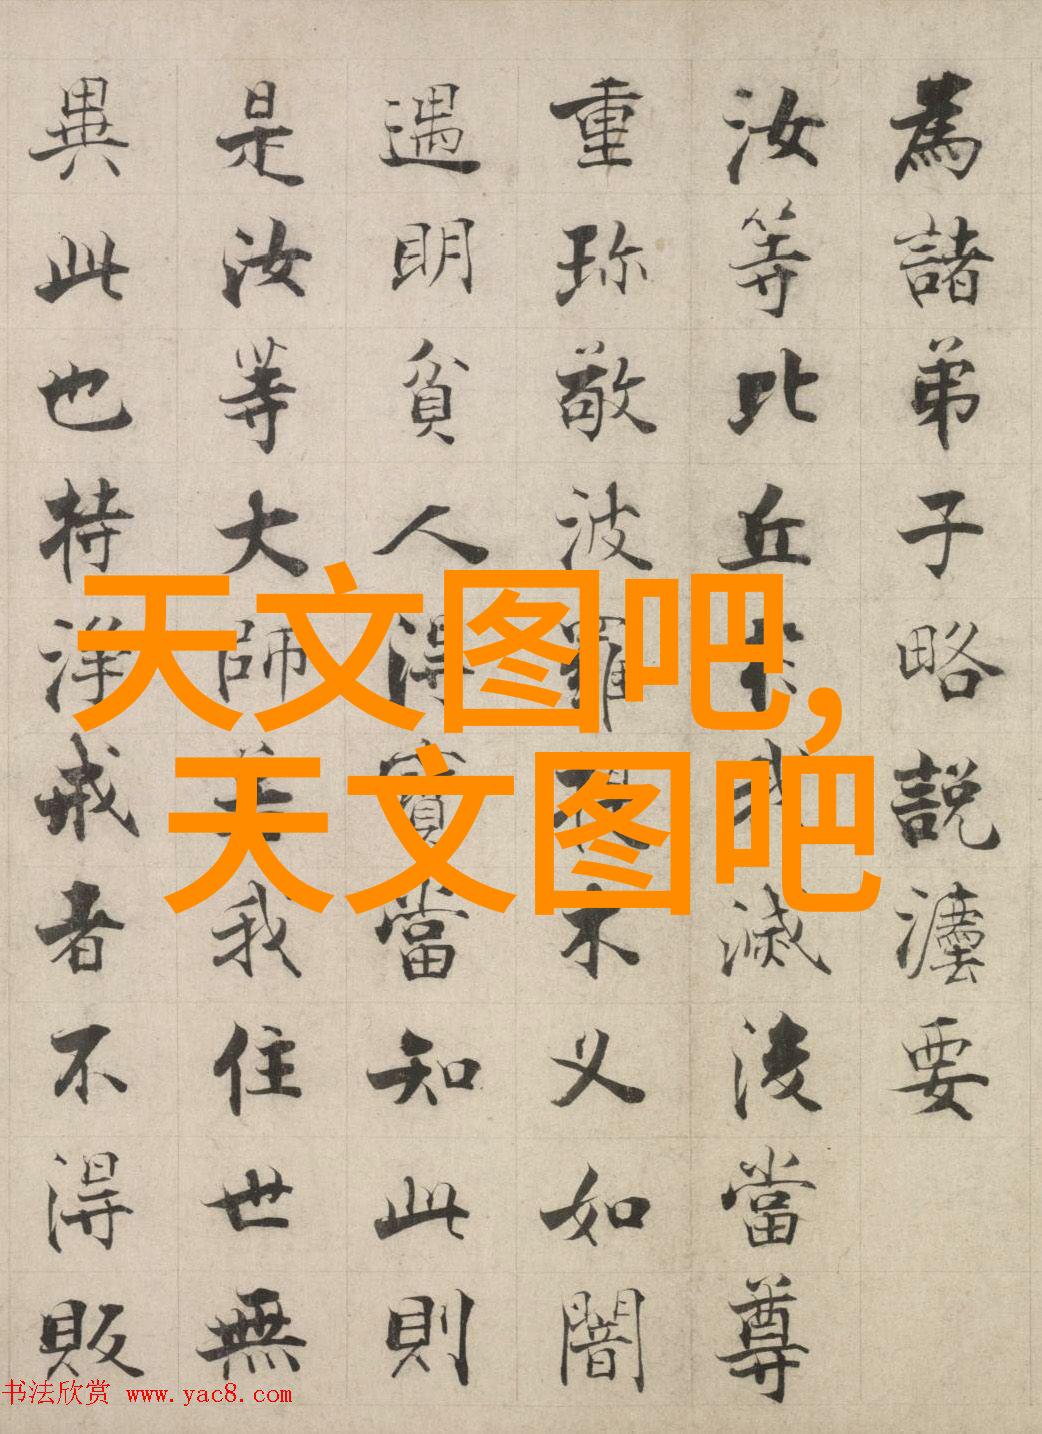 為諸弟子略説灋要
汝等比丘於我滅後當尊
重珎敬波羅提木叉如闇
遇明貧人得寳當知此則
是汝等大師若我住世無
異此也持淨戒者不得販
天文图吧,
天文图吧
书法欣赏 www.yac8.com